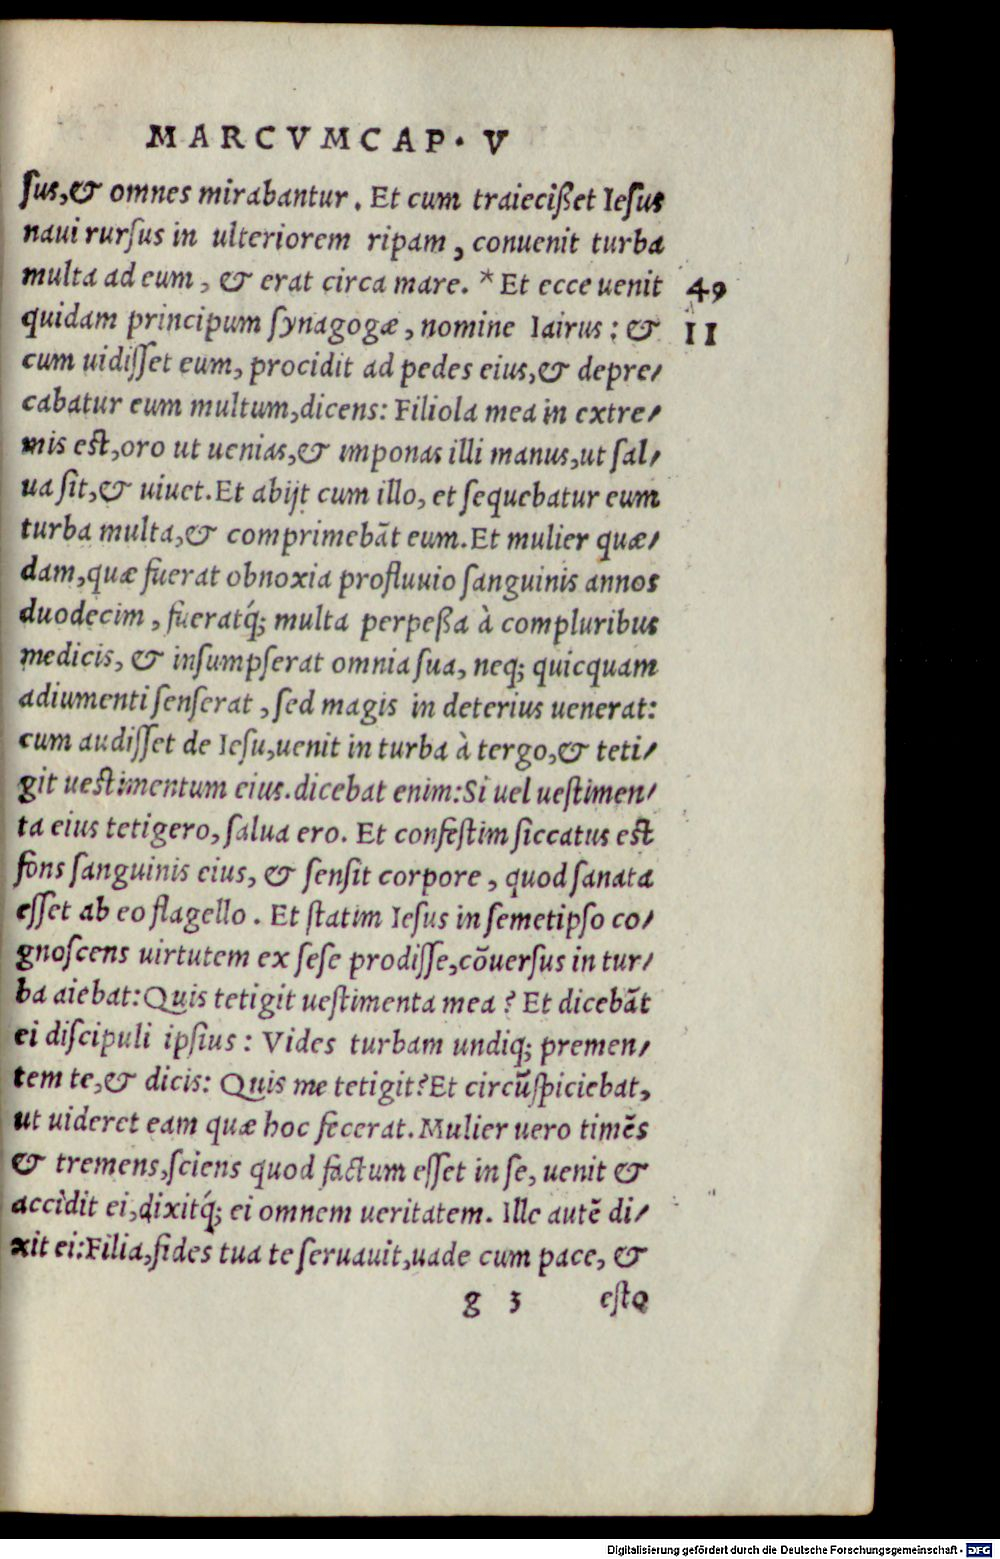 MARCVM CAP. V
ſus,& omnes mirabantur. Et cum traieciſſet Ieſus
naui rurſus in ulteriorem ripam, conuenit turba
multa ad eum, & erat circa mare. *Et ecce uenit 49
quidam principum ſynagogæ, nomine Iairus: & II
cum uidiſſet eum, procidit ad pedes eius,& depre/
cabatur eum multum,dicens: Filiola mea in extre/
mis est,oro ut uenias,& imponas illi manus,ut ſal/
ua ſit,& uiuet. Et abijt cum illo, et ſequebatur eum
turba multa,& comprimebāt eum. Et mulier quæ/
dam,quæ fuerat obnoxia profluuio ſanguinis annos
duodecim, fueratq́; multa perpeßa à compluribus
medicis, & inſumpſerat omnia ſua, neq; quicquam
adiumenti ſenſerat, ſed magis in deterius uenerat:
cum audiſſet de Ieſu,uenit in turba à tergo,& teti/
git uestimentum eius. dicebat enim: Si uel ueſtimen/
ta eius tetigero, ſalua ero. Et confeſtim ſiccatus est
fons ſanguinis eius, & ſenſit corpore, quod ſanata
eſſet ab eo flagello. Et ſtatim Ieſus in ſemetipſo co/
gnoſcens uirtutem ex ſeſe prodiſſe,cōuerſus in tur/
ba aiebat: Quis tetigit ueſtimenta mea? Et dicebāt
ei diſcipuli ipſius: Vides turbam undiq; premen/
tem te,& dicis: Quis me tetigit? Et circūſpiciebat,
ut uideret eam quæ hoc fecerat. Mulier uero timēs
& tremens,ſciens quod factum eſſet in ſe, uenit &
accidit ei,dixitq́; ei omnem ueritatem. Ille autē di/
xit ei: Filia,fides tua te ſeruauit,uade cum pace, &
g 3 eſto
Digitalisierung gefördert durch die Deutsche Forschungsgemeinschaft - DFG